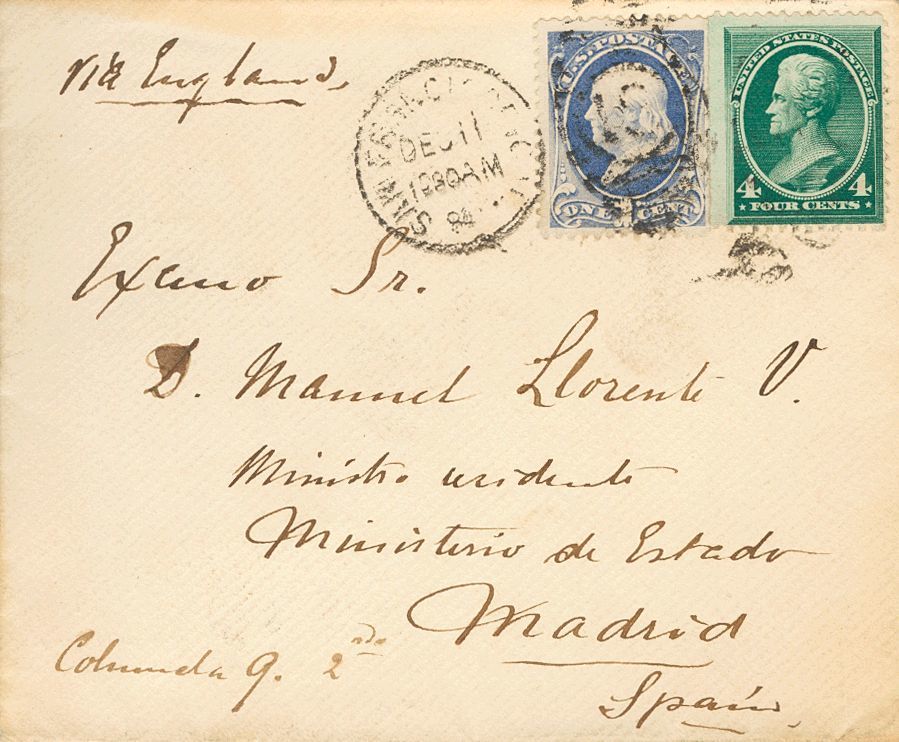 via England,
SAN FRANCISCO
DEC 11
1230AM
84
U.S. POSTAGE
ONE CENT
UNITED STATES POSTAGE
4 4
FOUR CENTS
Excmo Sr.
D. Manuel Llorente V.
Ministro residente
Ministerio de Estado
Madrid
Spain,
Columela 9. 2ndo